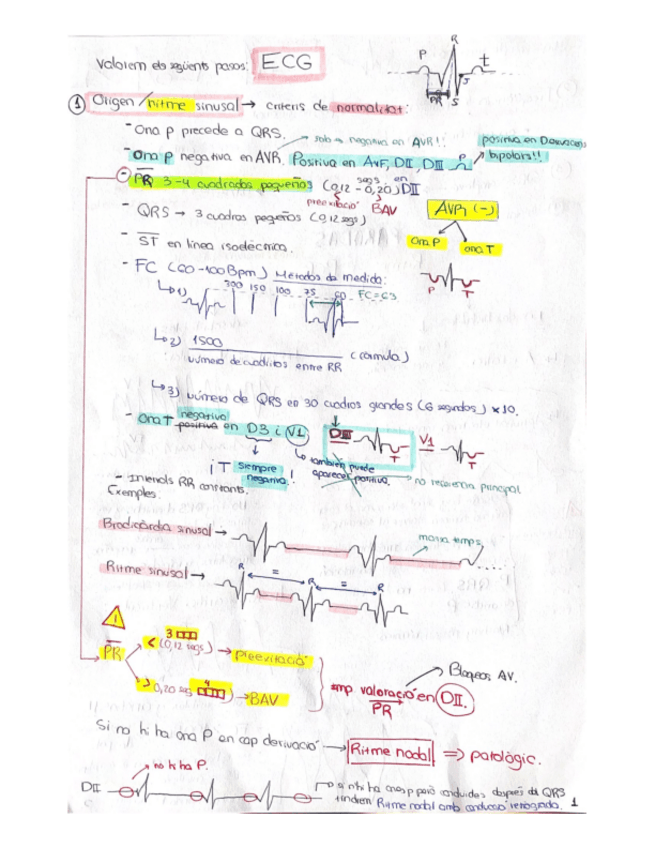 Valorem els següents pasos: ECG
P R t
PR S J
1 Origen / ritme sinusal → criteris de normalitat:
- Ona p precede a QRS.
→ sob → negativa en AVR!!
- Ona P negativa en AVR. Positiva en AvF, DII, DIII
P → positiva en Derivacions bipolars!!
- PR 3-4 cuadrados pequeños (0,12 - 0,20) segs en DII
preexitació BAV
- QRS → 3 cuadros pequeños (0,12 segs)
AVR (-)
Ona P ona T
- ST en línea isoeléctrica.
P T
- FC (60-100 Bpm) Métodos de medida:
↳ 1) 300 150 100 75 60 FC=63
↳ 2) 1500
número de cuadritos entre RR (fórmula)
↳ 3) número de QRS en 30 cuadros grandes (6 segundos) x 10.
- Ona T positiva negativa en D3 i V1
DIII T V1 T
¡T siempre negativa!
↳ también puede aparecer positiva.
→ no referencia principal
- Intervals RR constants.
Exemples:
Bradicàrdia sinusal →
massa temps.
Ritme sinusal →
R = R = R
!
PR
< 3 (0,12 segs) → preexitació
> 0,20 seg 4 → BAV
imp valoració en DII.
PR
→ Bloqueos AV.
Si no hi ha ona P en cap derivació → Ritme nodal ⇒ patològic.
→ no hi ha P.
DII
→ si hi ha ones p però conduides després del QRS
tindrem Ritme nodal amb conducció retrógrada. 1